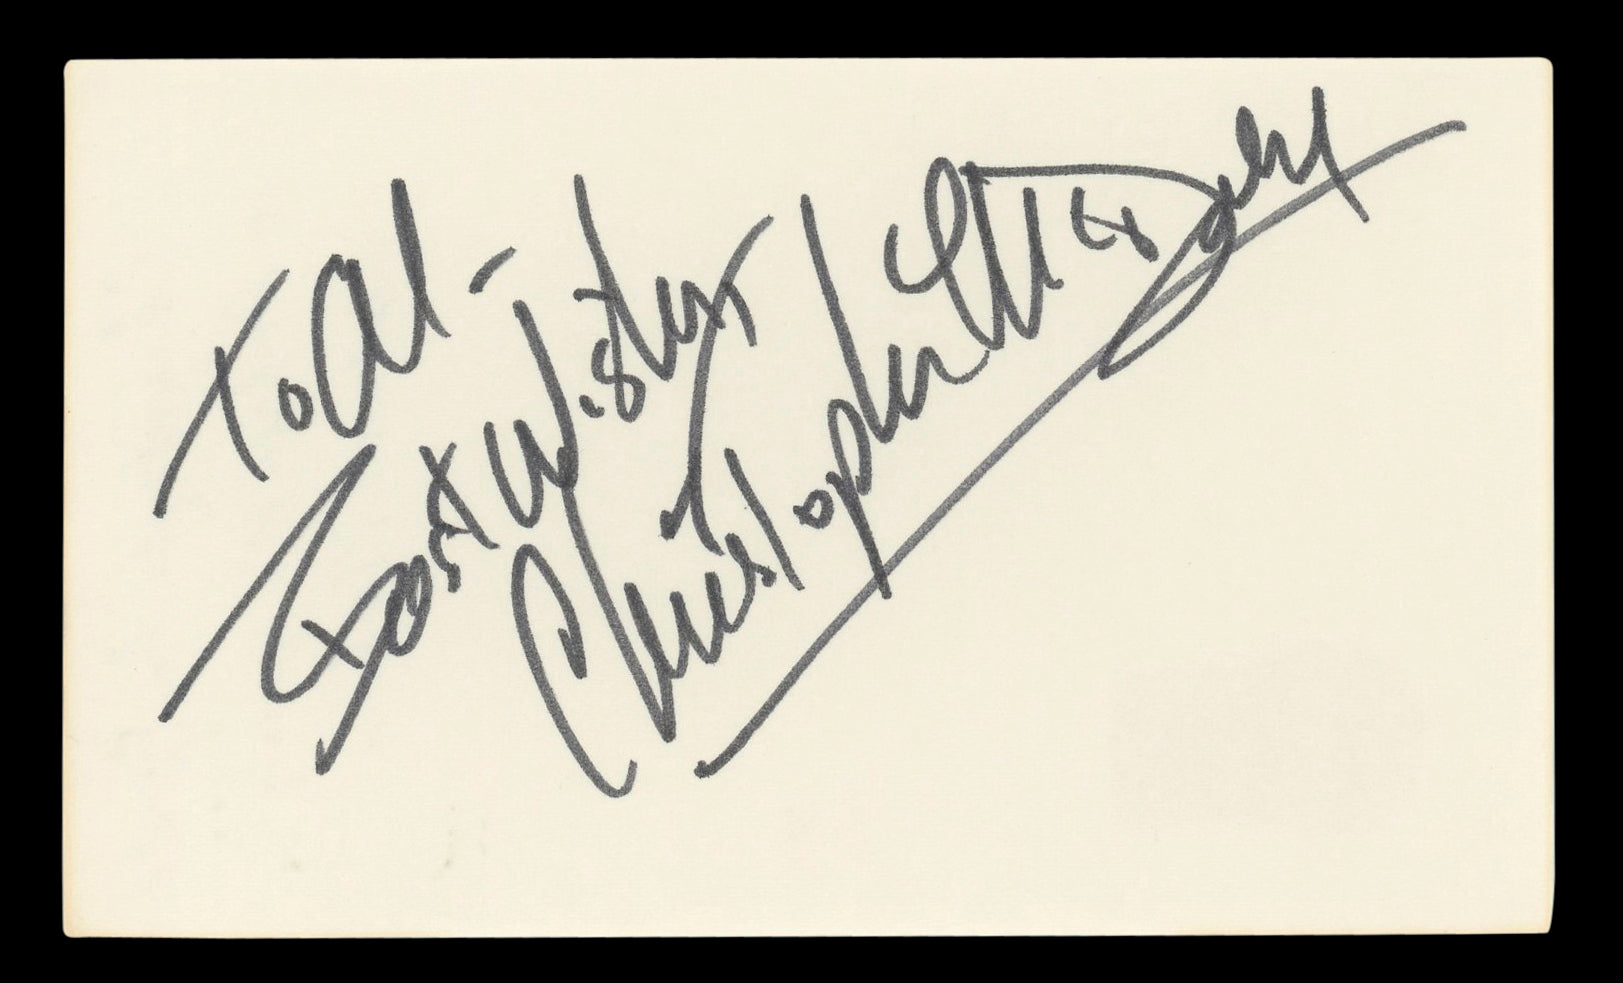 To Al -
Best Wishes
Christopher McDonald